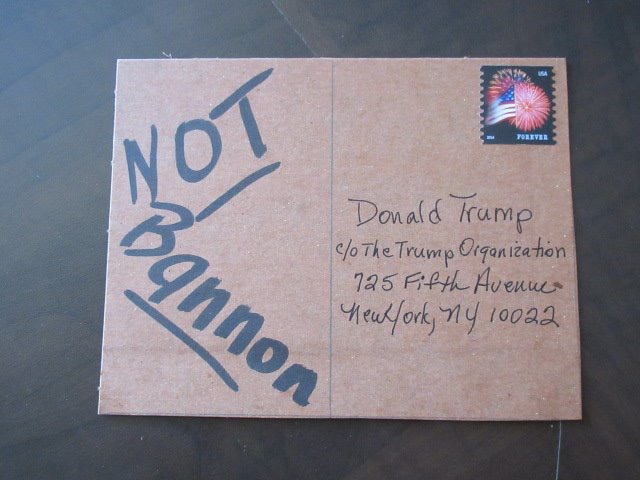 NOT
Bannon
USA
2014 FOREVER
Donald Trump
c/o The Trump Organization
725 Fifth Avenue
New York, NY 10022